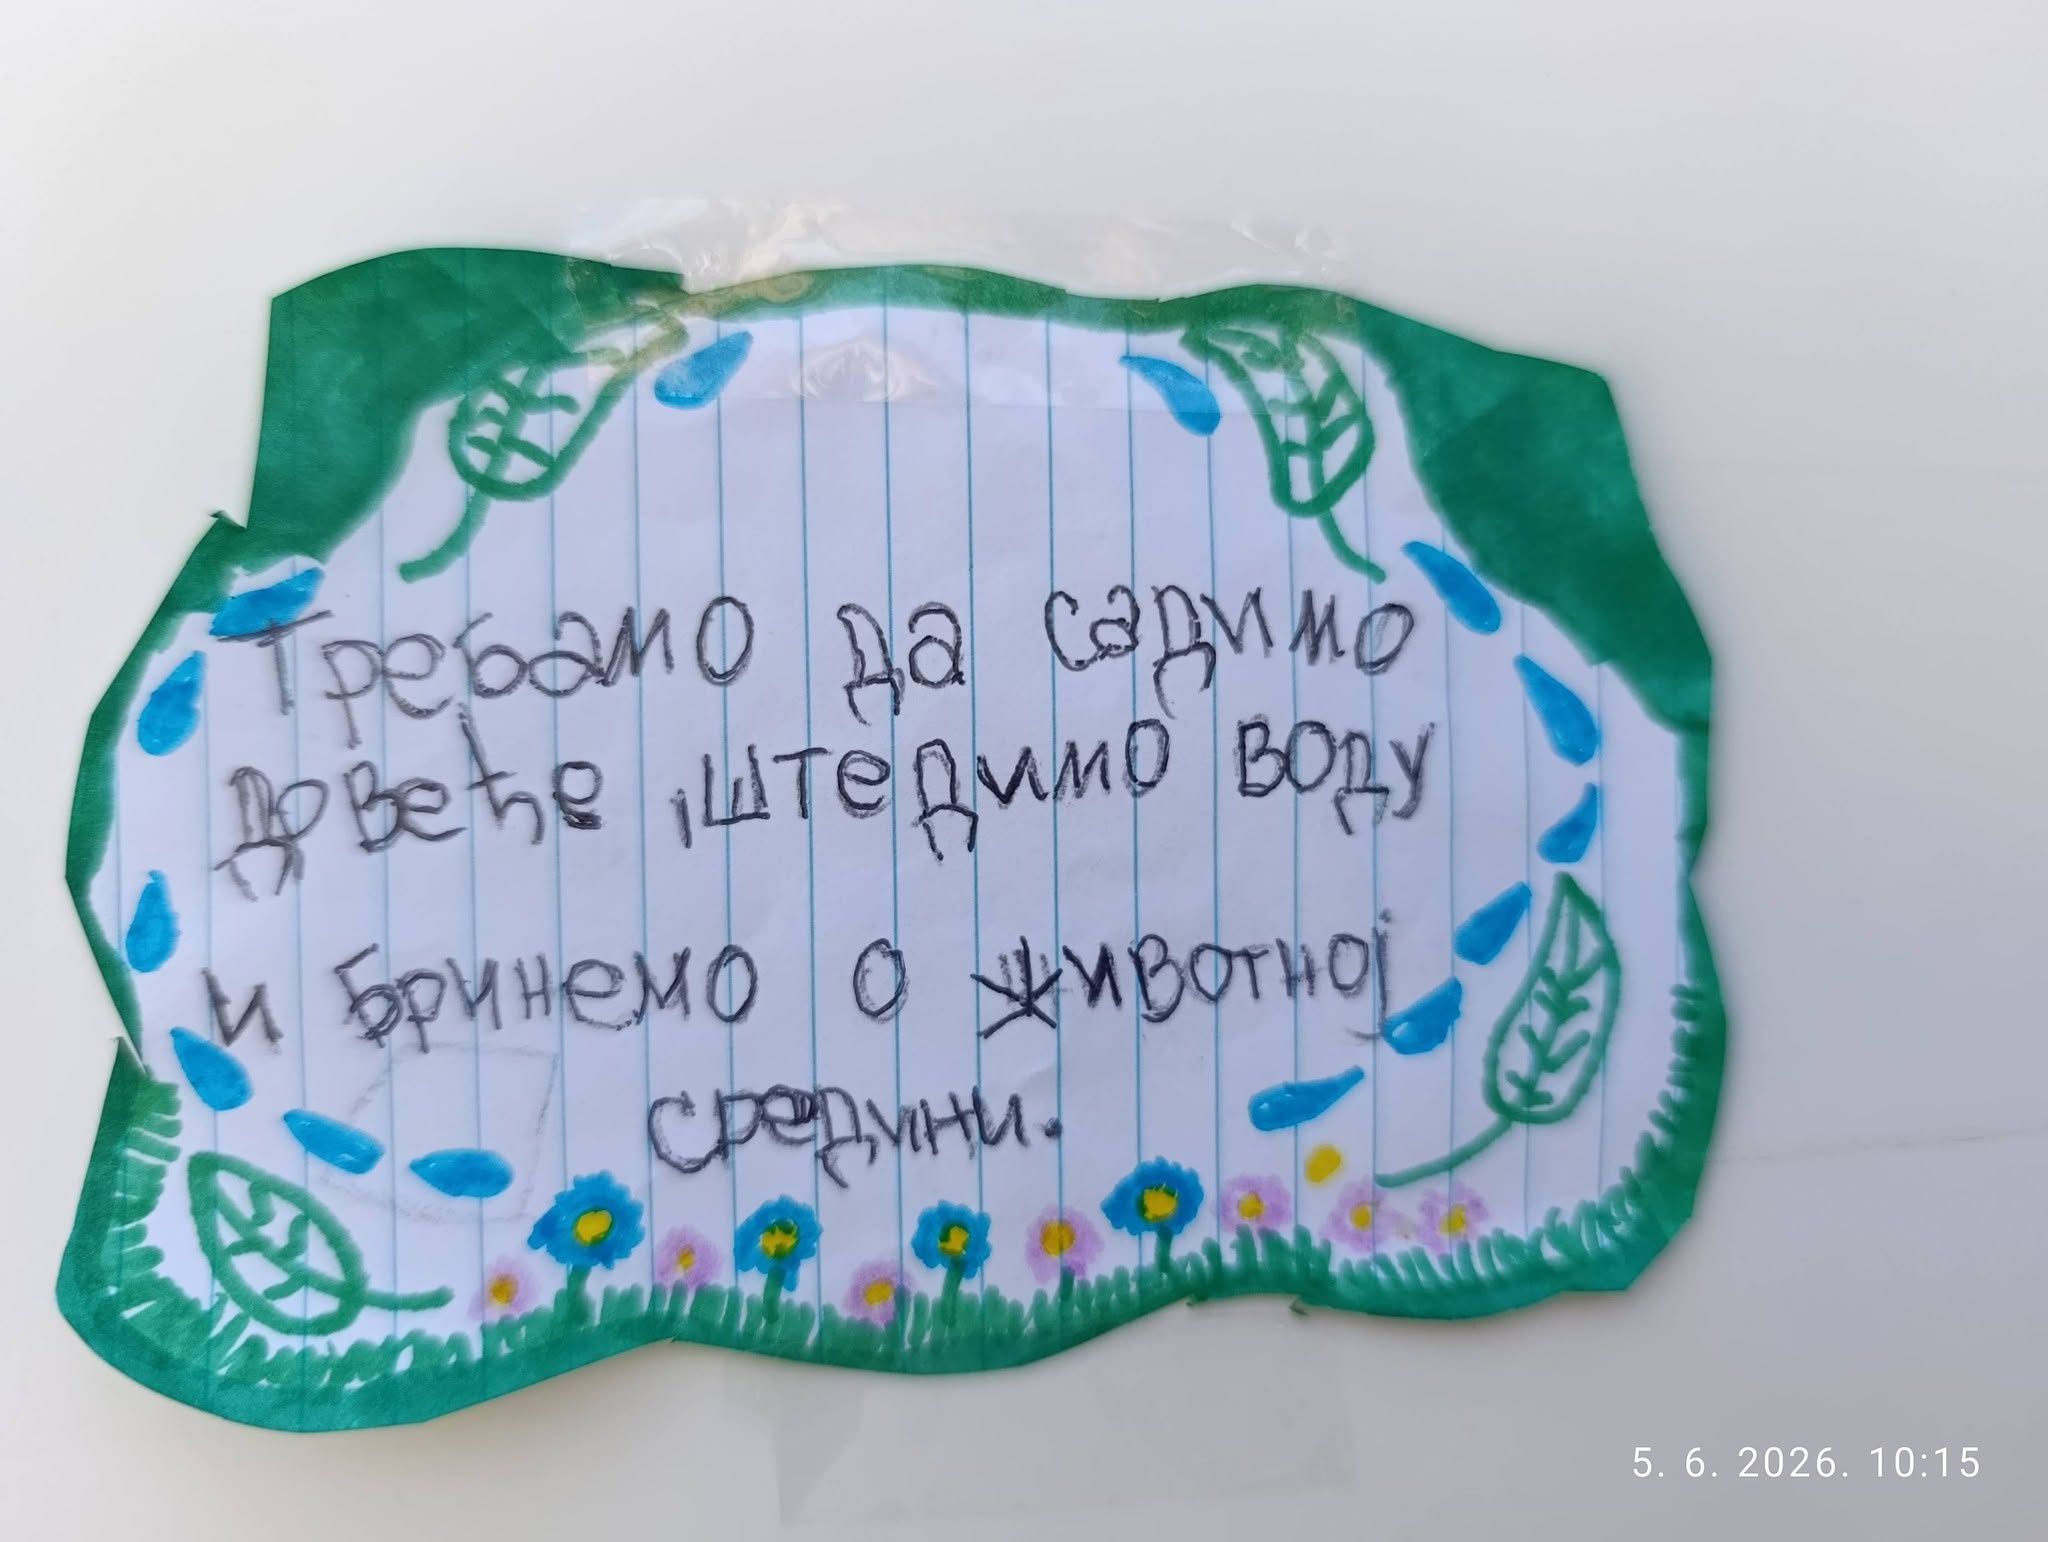 Требамо да садимо
довеђе, штедимо воду
и бринемо о животној
средини.
5. 6. 2026. 10:15